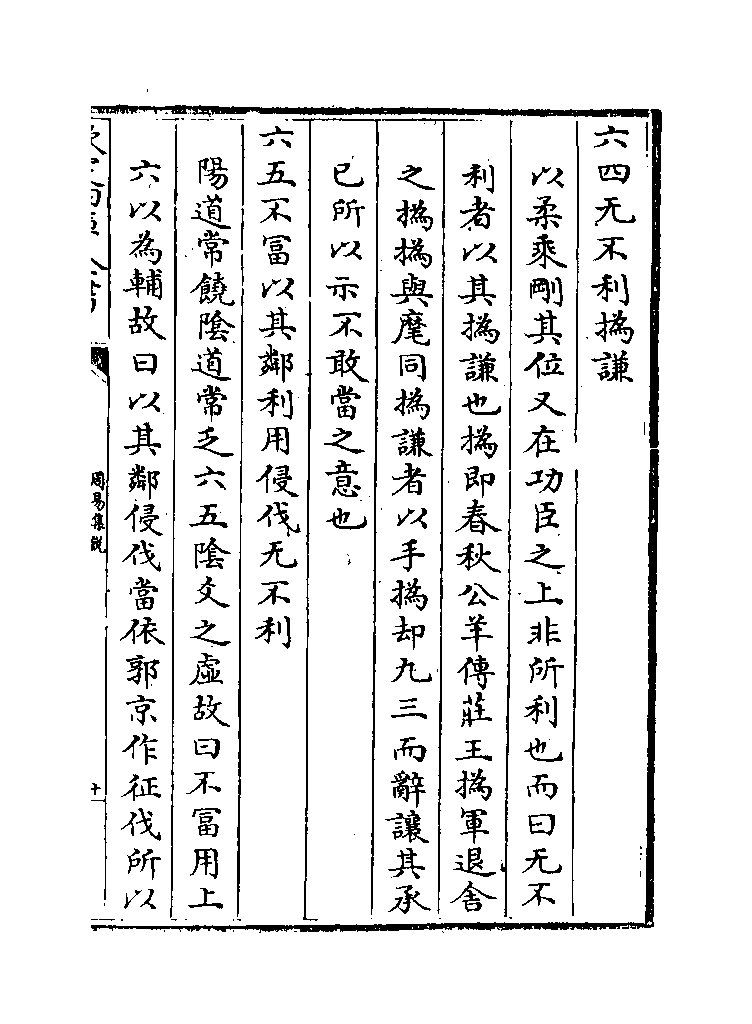 六四无不利撝謙
以柔乘剛其位又在功臣之上非所利也而曰无不
利者以其撝謙也撝即春秋公羊傳莊王撝軍退舍
之撝撝與麾同撝謙者以手撝却九三而辭讓其承
已所以示不敢當之意也
六五不冨以其鄰利用侵伐无不利
陽道常饒陰道常乏六五陰爻之虛故曰不冨用上
六以為輔故曰以其鄰侵伐當依郭京作征伐所以
周易集說
十